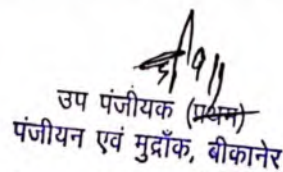 उप पंजीयक (प्रथम)
पंजीयन एवं मुद्राँक, बीकानेर